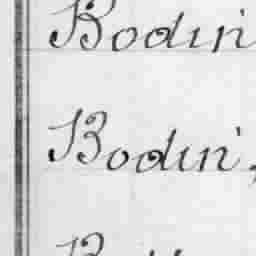 Bodin
Bodin,